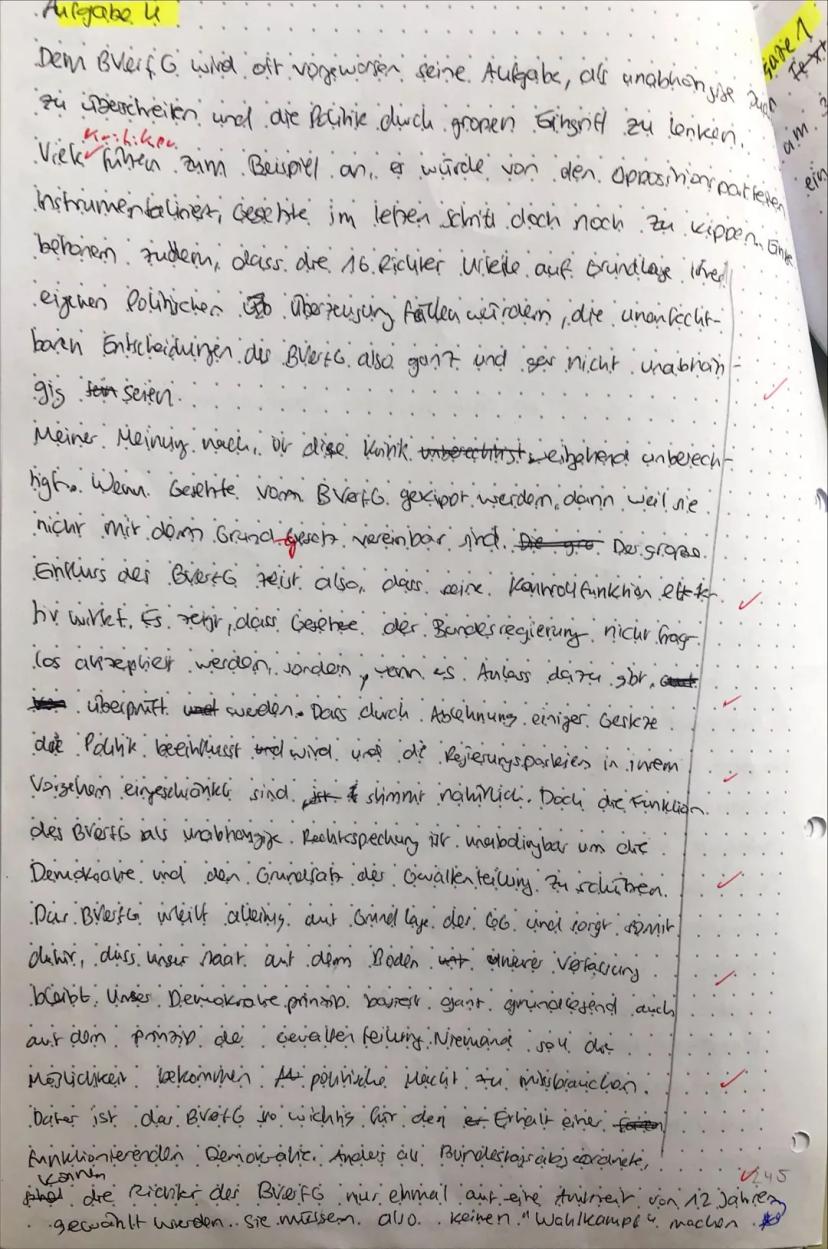 Aufgabe 4
Dem BVerfG wird oft vorgeworfen seine Aufgabe, als unabhängige
zu überschreiten und die Politik durch großen Eingriff zu lenken.
Kritiker
Viele führen zum Beispiel an, es würde von den Oppositionsparteien
instrumentalisiert, Gesetzte im letzen Schritt doch noch zu kippen. Einige
betonen zudem, dass die 16 Richter Urteile auf Grundlage ihrer
eigenen Politischen Überzeugung fällen würden, die unanfecht-
baren Entscheidungen des BVerfG also ganz und gar nicht unabhän-
gig sein seien.
Meiner Meinung nach, ist diese Kritik unberechtigt weitgehend unberech-
tigt. Wenn Gesetzte vom BVerfG gekippt werden, dann weil sie
nicht mit dem Grundgesetz vereinbar sind. Die gro Der große
Einfluss des BVerfG zeigt also, dass seine Kontrollfunktion effek-
tiv wirkt. Es zeigt, dass Gesetze der Bundesregierung nicht frag-
los akzeptiert werden, sondern, wenn es Anlass dazu gibt,
überprüft und werden. Dass durch Ablehnung einiger Gesetze
die Politik beeinflusst und wird und die Regierungsparteien in ihrem
Vorgehen eingeschränkt sind, ist stimmt natürlich. Doch die Funktion
des BVerfG als unabhängige Rechtsprechung ist unabdingbar um die
Demokratie und den Grundsatz der Gewaltenteilung zu schützen.
Das BVerfG urteilt alleinig auf Grundlage des GG und sorgt somit
dafür, dass unser Staat auf dem Boden unserer Verfassung
bleibt. Unser Demokratieprinzip basiert ganz grundlegend auch
auf dem Prinzip der Gewaltenteilung. Niemand soll die
Möglichkeit bekommen politische Macht zu missbrauchen.
Daher ist das BVerfG so wichtig für den Erhalt einer
funktionierenden Demokratie. Anders als Bundestagsabgeordnete,
können
die Richter des BVerfG nur einmal auf eine Amtszeit von 12 Jahren
245
gewählt werden. Sie müssen also keinen "Wahlkampf" machen
Seite 1
am
ein